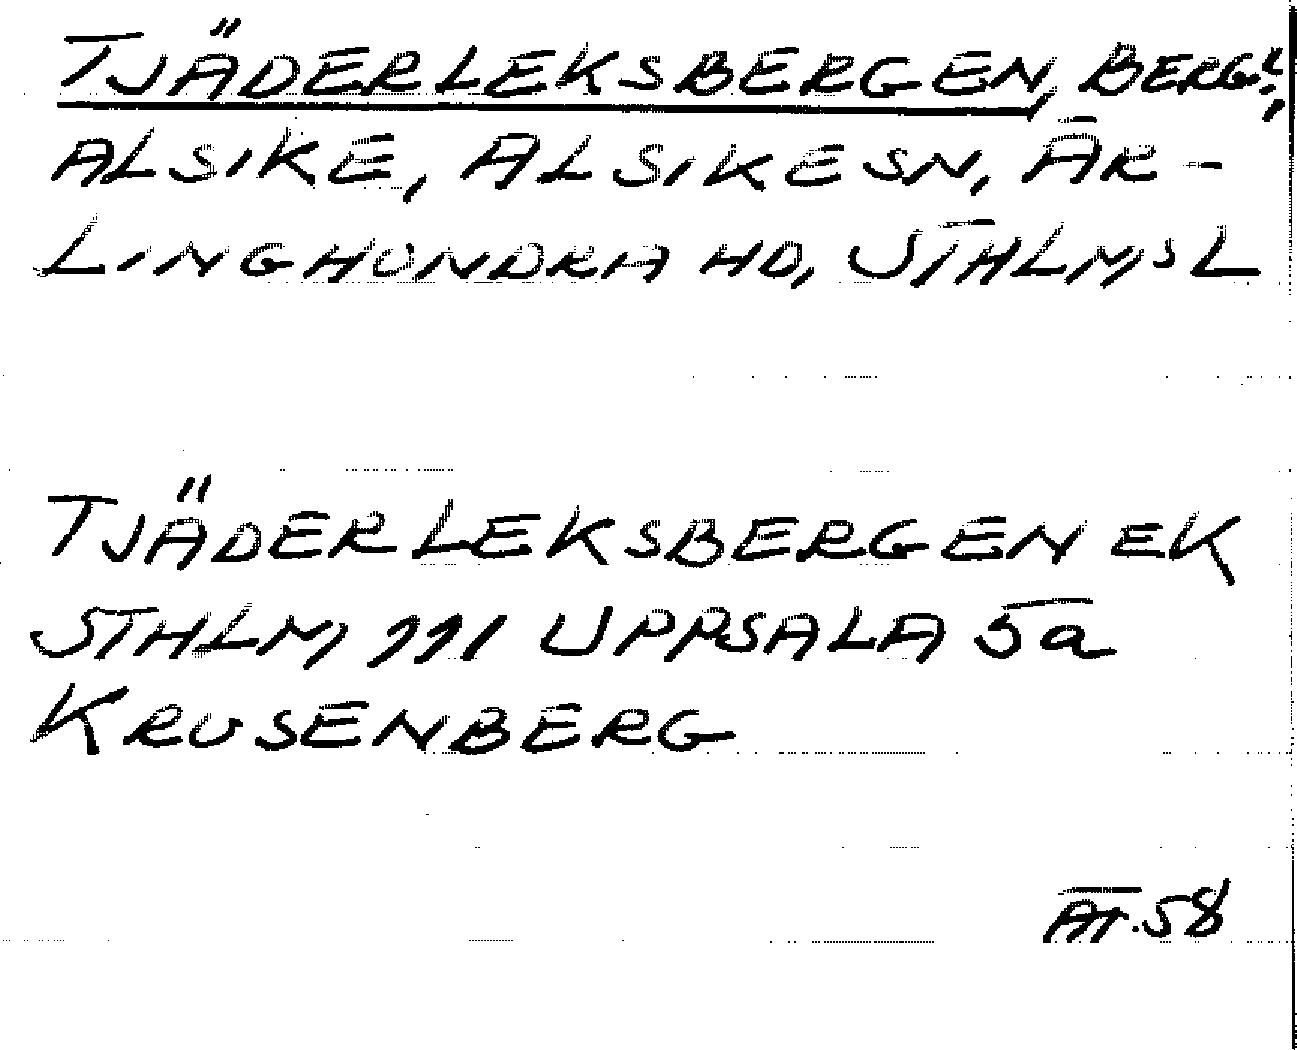 TJÄDERLEKSBERGEN, BERG!,
ALSIKE, ALSIKE SN, ÄR-
LINGHUNDRA HD, STHLMS L
TJÄDERLEKSBERGEN EK
STHLM 111 UPPSALA 5a
KRUSENBERG
ÄT.58